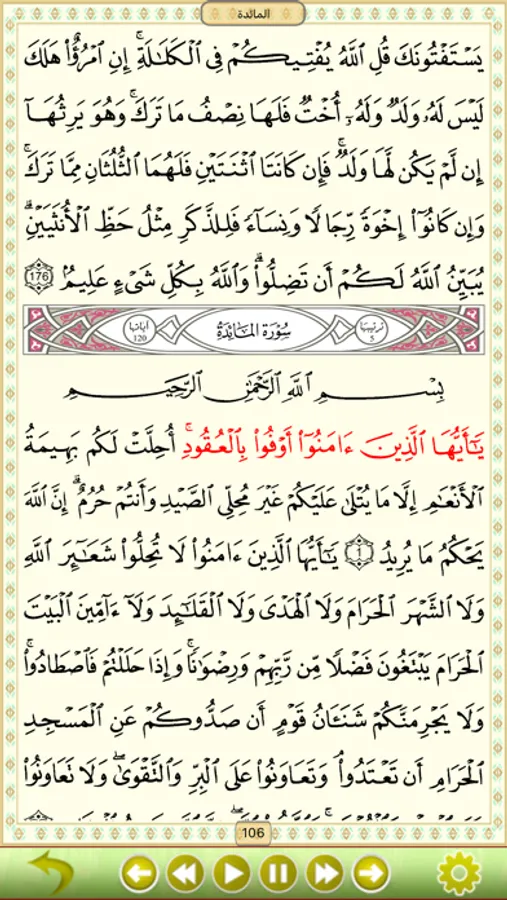 المائدة
يَسْتَفْتُونَكَ قُلِ ٱللَّهُ يُفْتِيكُمْ فِى ٱلْكَلَـٰلَةِ ۚ إِنِ ٱمْرُؤٌا۟ هَلَكَ
لَيْسَ لَهُۥ وَلَدٌ وَلَهُۥٓ أُخْتٌ فَلَهَا نِصْفُ مَا تَرَكَ ۚ وَهُوَ يَرِثُهَآ
إِن لَّمْ يَكُن لَّهَا وَلَدٌ ۚ فَإِن كَانَتَا ٱثْنَتَيْنِ فَلَهُمَا ٱلثُّلُثَانِ مِمَّا تَرَكَ ۚ
وَإِن كَانُوٓا۟ إِخْوَةً رِّجَالًا وَنِسَآءً فَلِلذَّكَرِ مِثْلُ حَظِّ ٱلْأُنثَيَيْنِ ۗ
يُبَيِّنُ ٱللَّهُ لَكُمْ أَن تَضِلُّوا۟ ۗ وَٱللَّهُ بِكُلِّ شَىْءٍ عَلِيمٌۢ 176
ترتيبها 5 سُورَة المَائدَة آياتها 120
بِسْمِ ٱللَّهِ ٱلرَّحْمَـٰنِ ٱلرَّحِيمِ
يَـٰٓأَيُّهَا ٱلَّذِينَ ءَامَنُوٓا۟ أَوْفُوا۟ بِٱلْعُقُودِ ۚ أُحِلَّتْ لَكُم بَهِيمَةُ
ٱلْأَنْعَـٰمِ إِلَّا مَا يُتْلَىٰ عَلَيْكُمْ غَيْرَ مُحِلِّى ٱلصَّيْدِ وَأَنتُمْ حُرُمٌ ۗ إِنَّ ٱللَّهَ
يَحْكُمُ مَا يُرِيدُ 1 يَـٰٓأَيُّهَا ٱلَّذِينَ ءَامَنُوا۟ لَا تُحِلُّوا۟ شَعَـٰٓئِرَ ٱللَّهِ
وَلَا ٱلشَّهْرَ ٱلْحَرَامَ وَلَا ٱلْهَدْىَ وَلَا ٱلْقَلَـٰٓئِدَ وَلَآ ءَآمِّينَ ٱلْبَيْتَ
ٱلْحَرَامَ يَبْتَغُونَ فَضْلًا مِّن رَّبِّهِمْ وَرِضْوَٰنًا ۚ وَإِذَا حَلَلْتُمْ فَٱصْطَادُوا۟ ۚ
وَلَا يَجْرِمَنَّكُمْ شَنَـَٔانُ قَوْمٍ أَن صَدُّوكُمْ عَنِ ٱلْمَسْجِدِ
ٱلْحَرَامِ أَن تَعْتَدُوا۟ ۘ وَتَعَاوَنُوا۟ عَلَى ٱلْبِرِّ وَٱلتَّقْوَىٰ ۖ وَلَا تَعَاوَنُوا۟
106